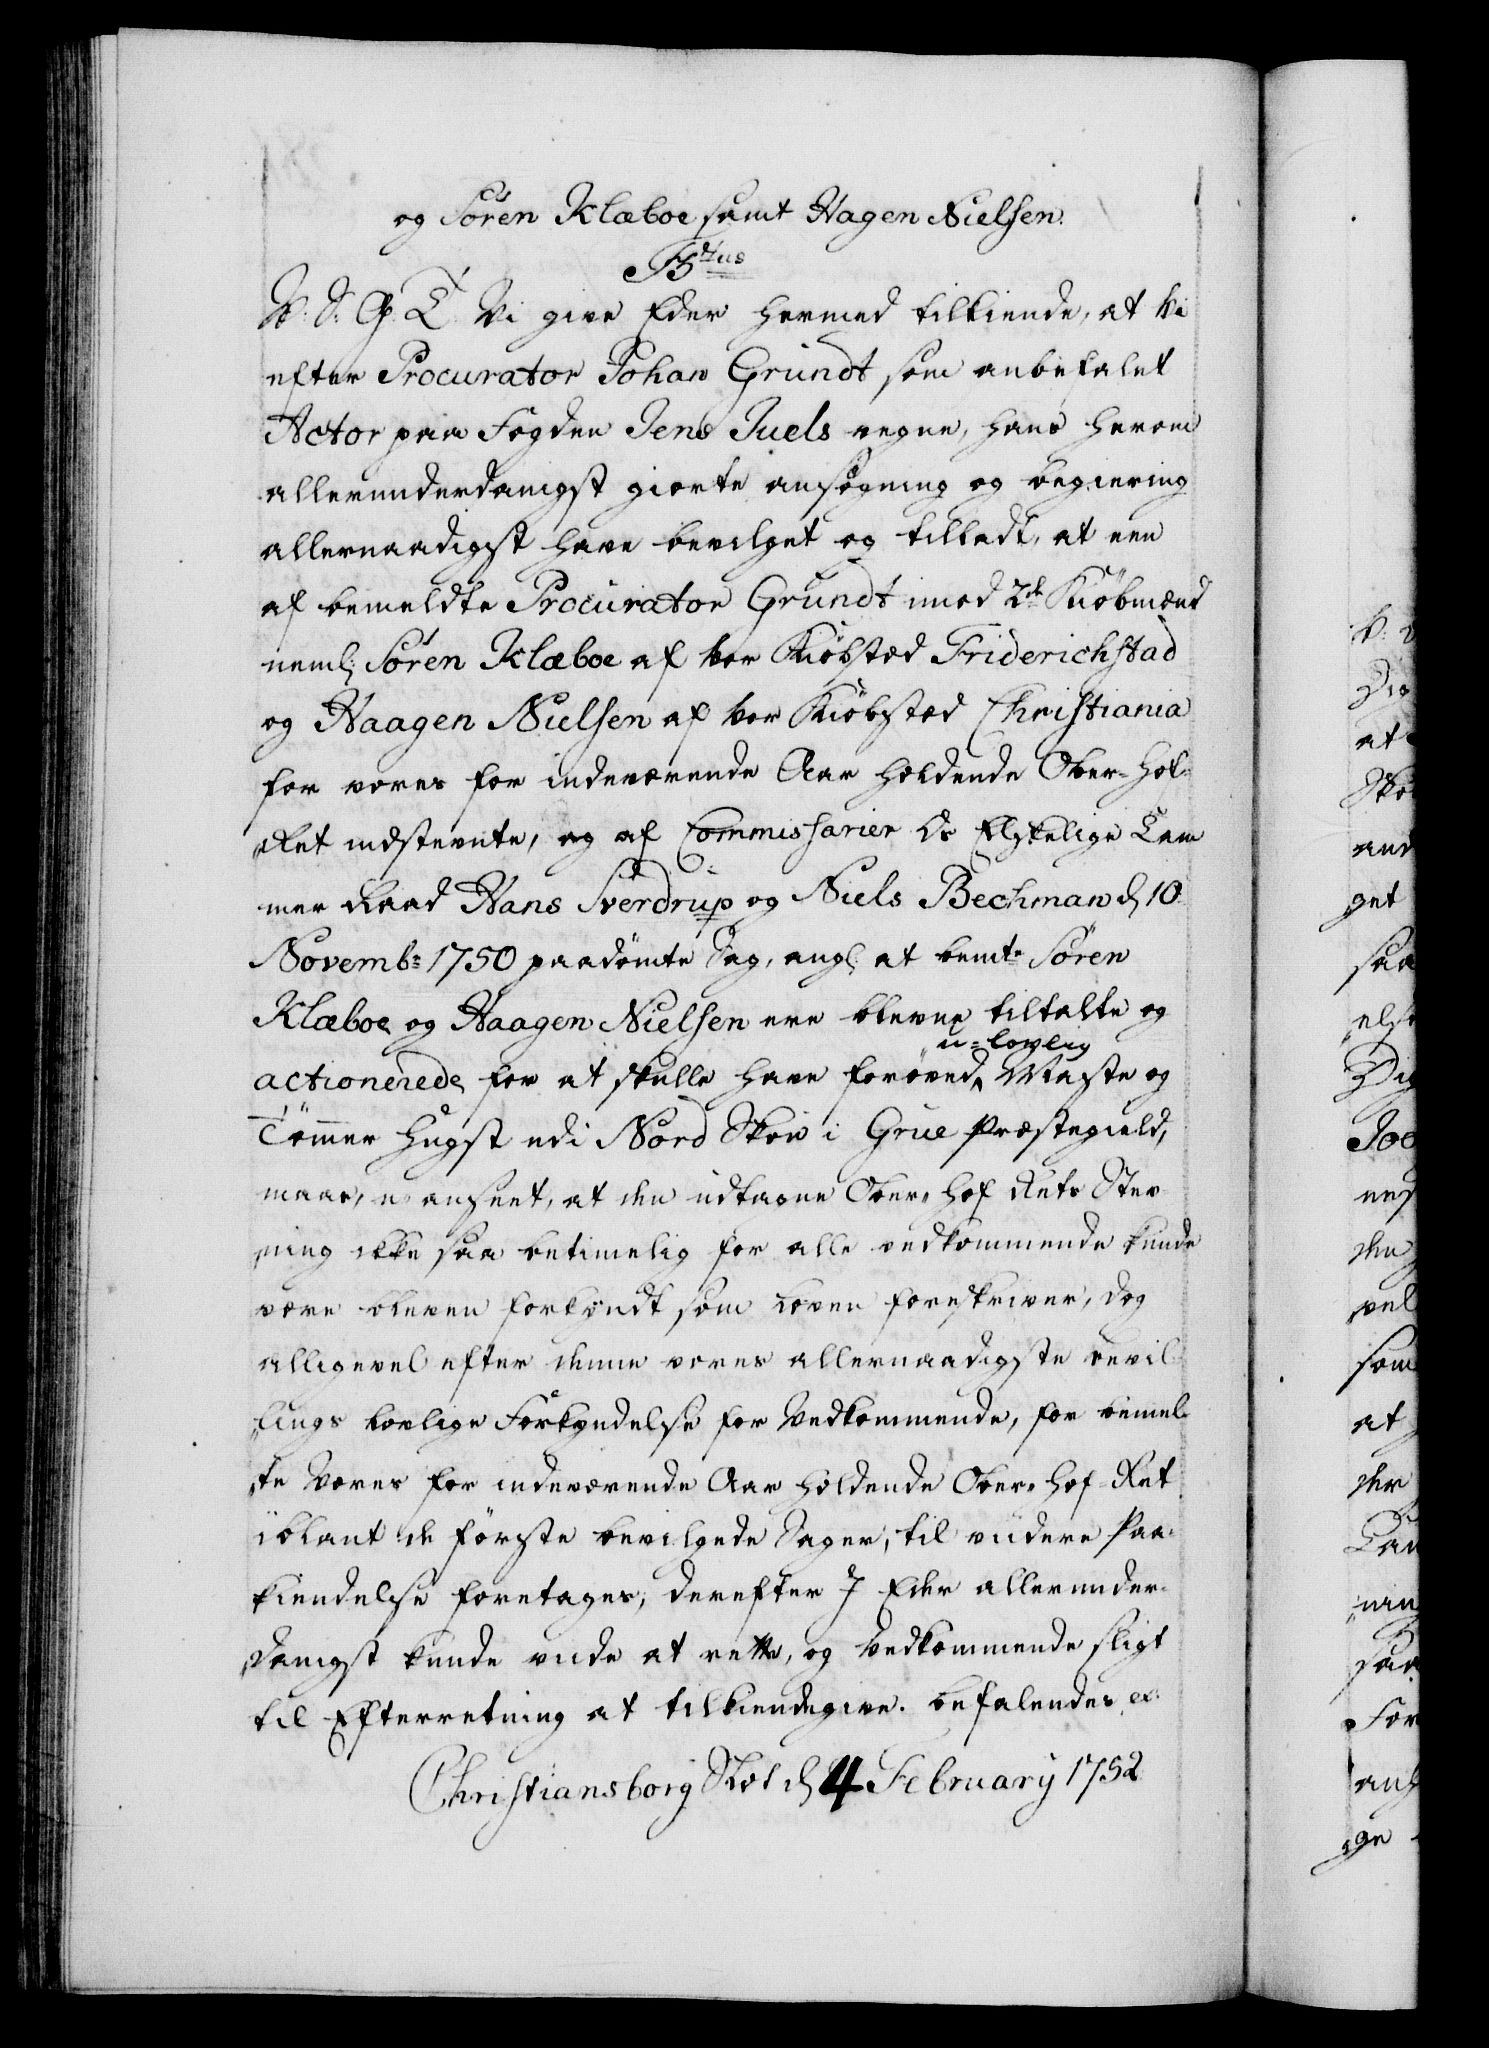 og Sören Klæboe samt Hagen Nielsen.
F5tus
V: S: G: T: Vi give Eder hermed tilkiende, at Vi
efter Procurator Johan Grundt som anbefalet
Actor paa Fogden Jens Juels vegne, hans herom
allerunderdanigst giorte ansögning og begiering
allernaadigst have bevilget og tilladt, at een
af bemeldte Procurator Grundt imod 2de Kiöbmænd
neml: Sören Klæboe af vor Kiöbstæd Friderichstad
og Haagen Nielsen af vor Kiöbstæd Christiania
for vores for indeværende Aar holdende Ober-Hof-
Ret indstevnte, og af Commissarier Os Elskelige Cam
mer Raad Hans Sverdrup og Niels Bechman d: 10
Novemb: 1750 paadömte Sag, angl: at bemte Sören
Klæboe og Haagen Nielsen ere blevne tiltalte og
u-lovlig
actionerede for at skulle have foröved Maste og
Tömmer Hugst udi Nord Skov i Grue Præstegield,
maae, u-anseet, at den udtagne Ober-Hof Rets Stev
ning ikke saa betimelig for alle vedkommende kunde
være bleven forkyndt som Loven foreskriver, dog
alligevel efter denne vores allernaadigste bevil-
lings lovlige Forkyndelse for Vedkommende, for bemel-
te Vores for indeværende Aar holdende Ober-Hof-Ret
iblant de förste bevilgede Sager, til viidere Paa-
kiendelse foretages; derefter I Eder allerunder-
danigst kunde viide at rette, og Vedkommende sligt
til Efterretning at tilkiendegive. befalendes etc:
Christiansborg Slot d: 4 February 1752